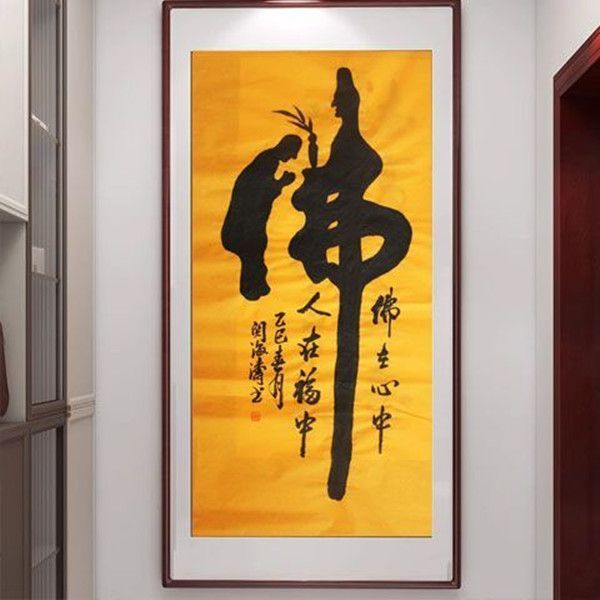 佛
佛在心中
人在福中
乙巳春月
关海涛书